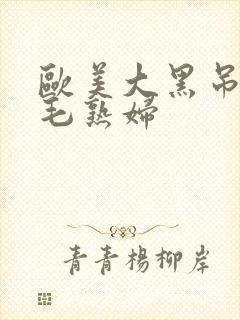 歐美大黑吊
毛熟婦
青青楊柳岸